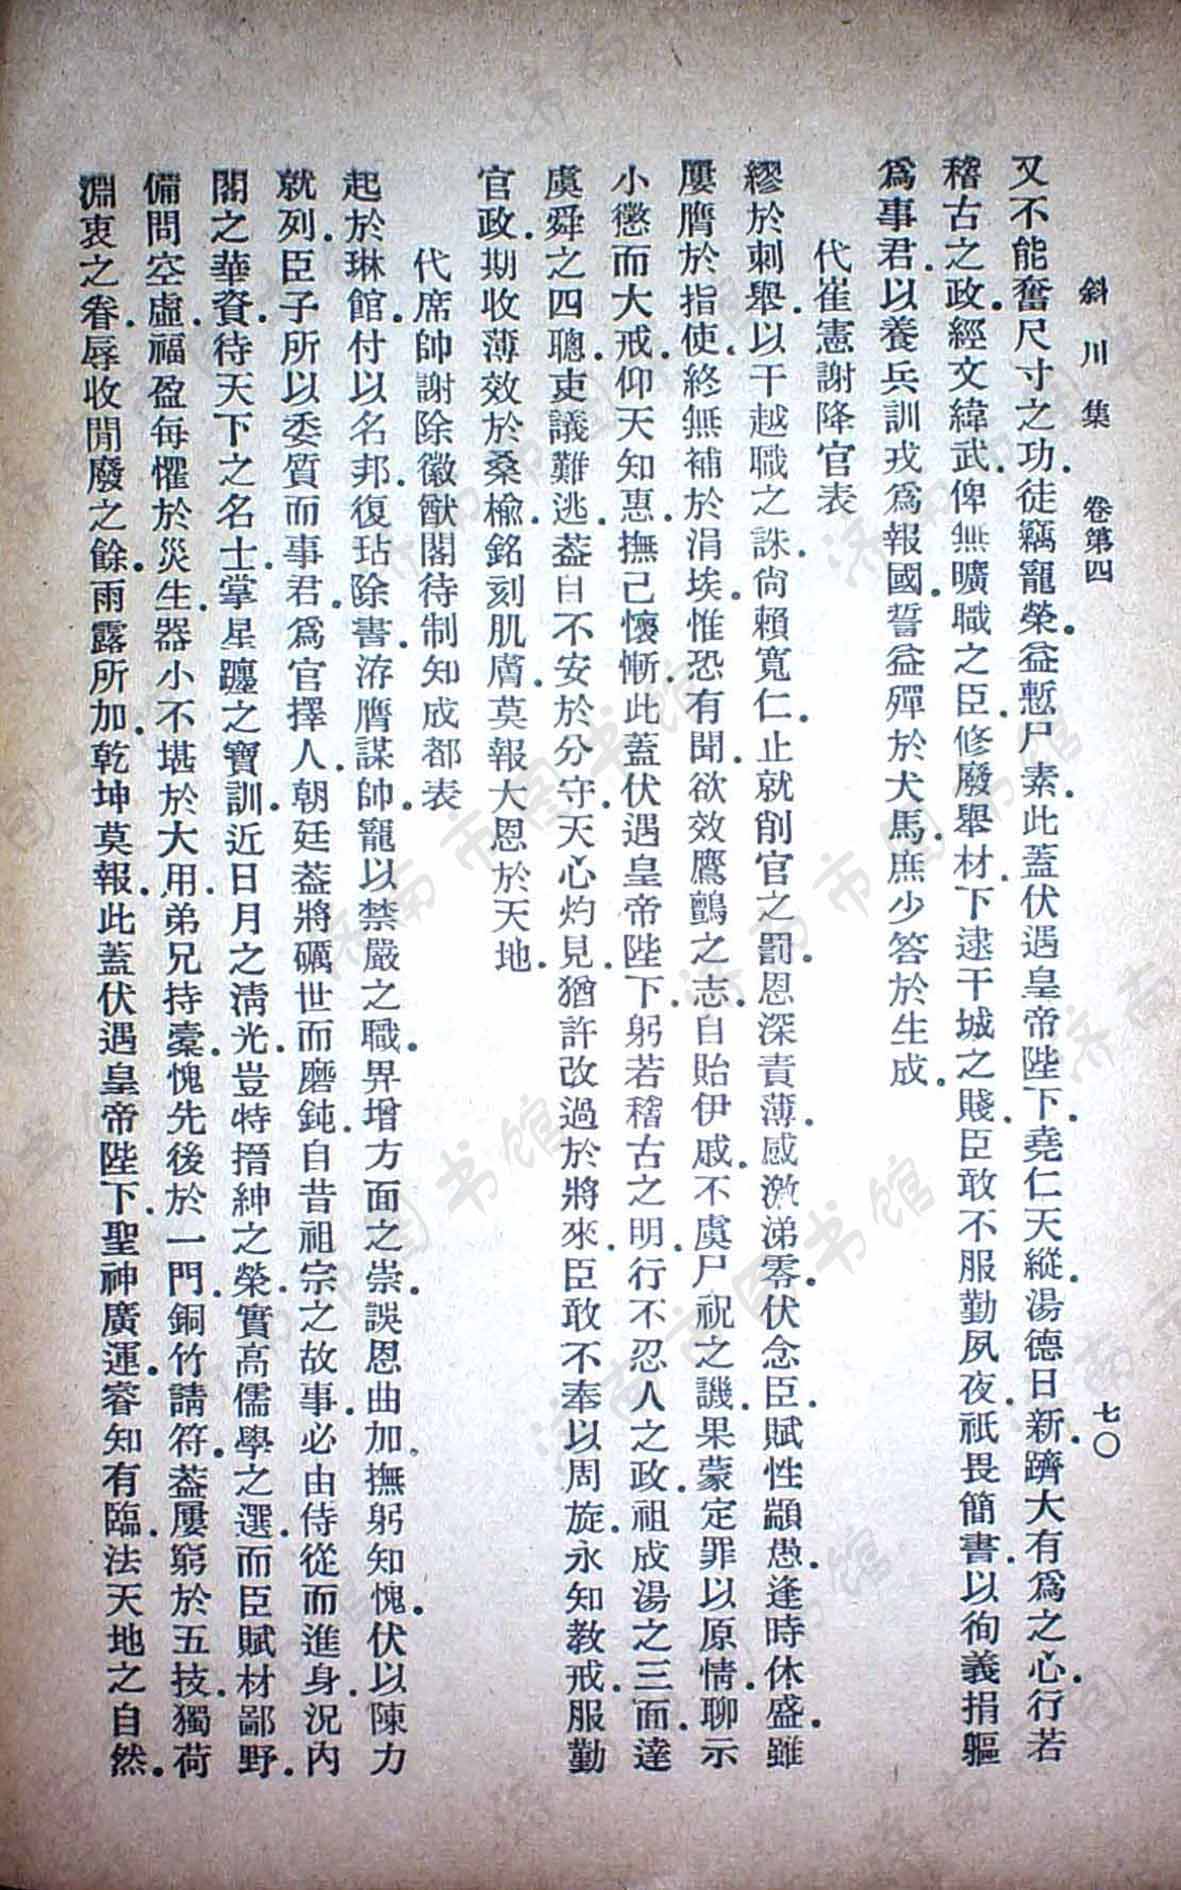 斜川集 卷第四 七〇
又不能奮尺寸之功.徒竊寵榮.益慙尸素.此蓋伏遇皇帝陛下.堯仁天縱.湯德日新.躋大有爲之心.行若
稽古之政.經文緯武.俾無曠職之臣.修廢舉材.下逮干城之賤.臣敢不服勤夙夜.祇畏簡書.以徇義捐軀
爲事君.以養兵訓戎爲報國.誓益殫於犬馬.庶少答於生成.
代崔憲謝降官表
繆於刺舉.以干越職之誅.尙賴寬仁.止就削官之罰.恩深責薄.感激涕零.伏念臣.賦性顓愚.逢時休盛.雖
屢膺於指使.終無補於涓埃.惟恐有聞.欲效鷹鸇之志.自貽伊戚.不虞尸祝之譏.果蒙定罪以原情.聊示
小懲而大戒.仰天知惠.撫己懷慚.此蓋伏遇皇帝陛下.躬若稽古之明.行不忍人之政.祖成湯之三面.達
虞舜之四聰.吏議難逃.葢自不安於分守.天心灼見.猶許改過於將來.臣敢不奉以周旋.永知教戒.服勤
官政.期收薄效於桑榆.銘刻肌膚.莫報大恩於天地.
代席帥謝除徽猷閣待制知成都表
起於琳館.付以名邦.復玷除書.洊膺謀帥.寵以禁嚴之職.畀增方面之崇.誤恩曲加.撫躬知愧.伏以陳力
就列.臣子所以委質而事君.爲官擇人.朝廷葢將礪世而磨鈍.自昔祖宗之故事.必由侍從而進身.況內
閣之華資.待天下之名士.掌星躔之寶訓.近日月之淸光.豈特搢紳之榮.實高儒學之選.而臣賦材鄙野.
備問空虛.福盈每懼於災生.器小不堪於大用.弟兄持橐.愧先後於一門.銅竹請符.葢屢窮於五技.獨荷
淵衷之眷.辱收閒廢之餘.雨露所加.乾坤莫報.此蓋伏遇皇帝陛下.聖神廣運.睿知有臨.法天地之自然.
济南市图书馆